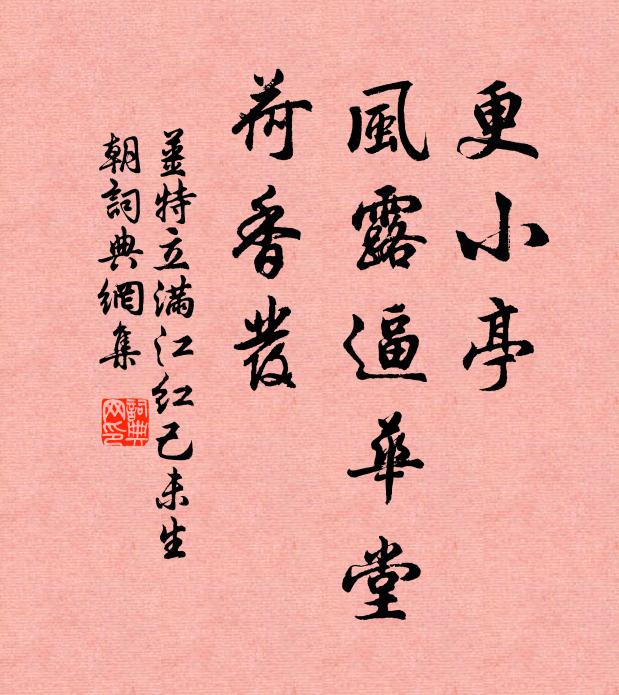 更小亭
風露逼華堂
荷香發
姜特立滿江紅己未生
朝詞典網集
詞典
网印